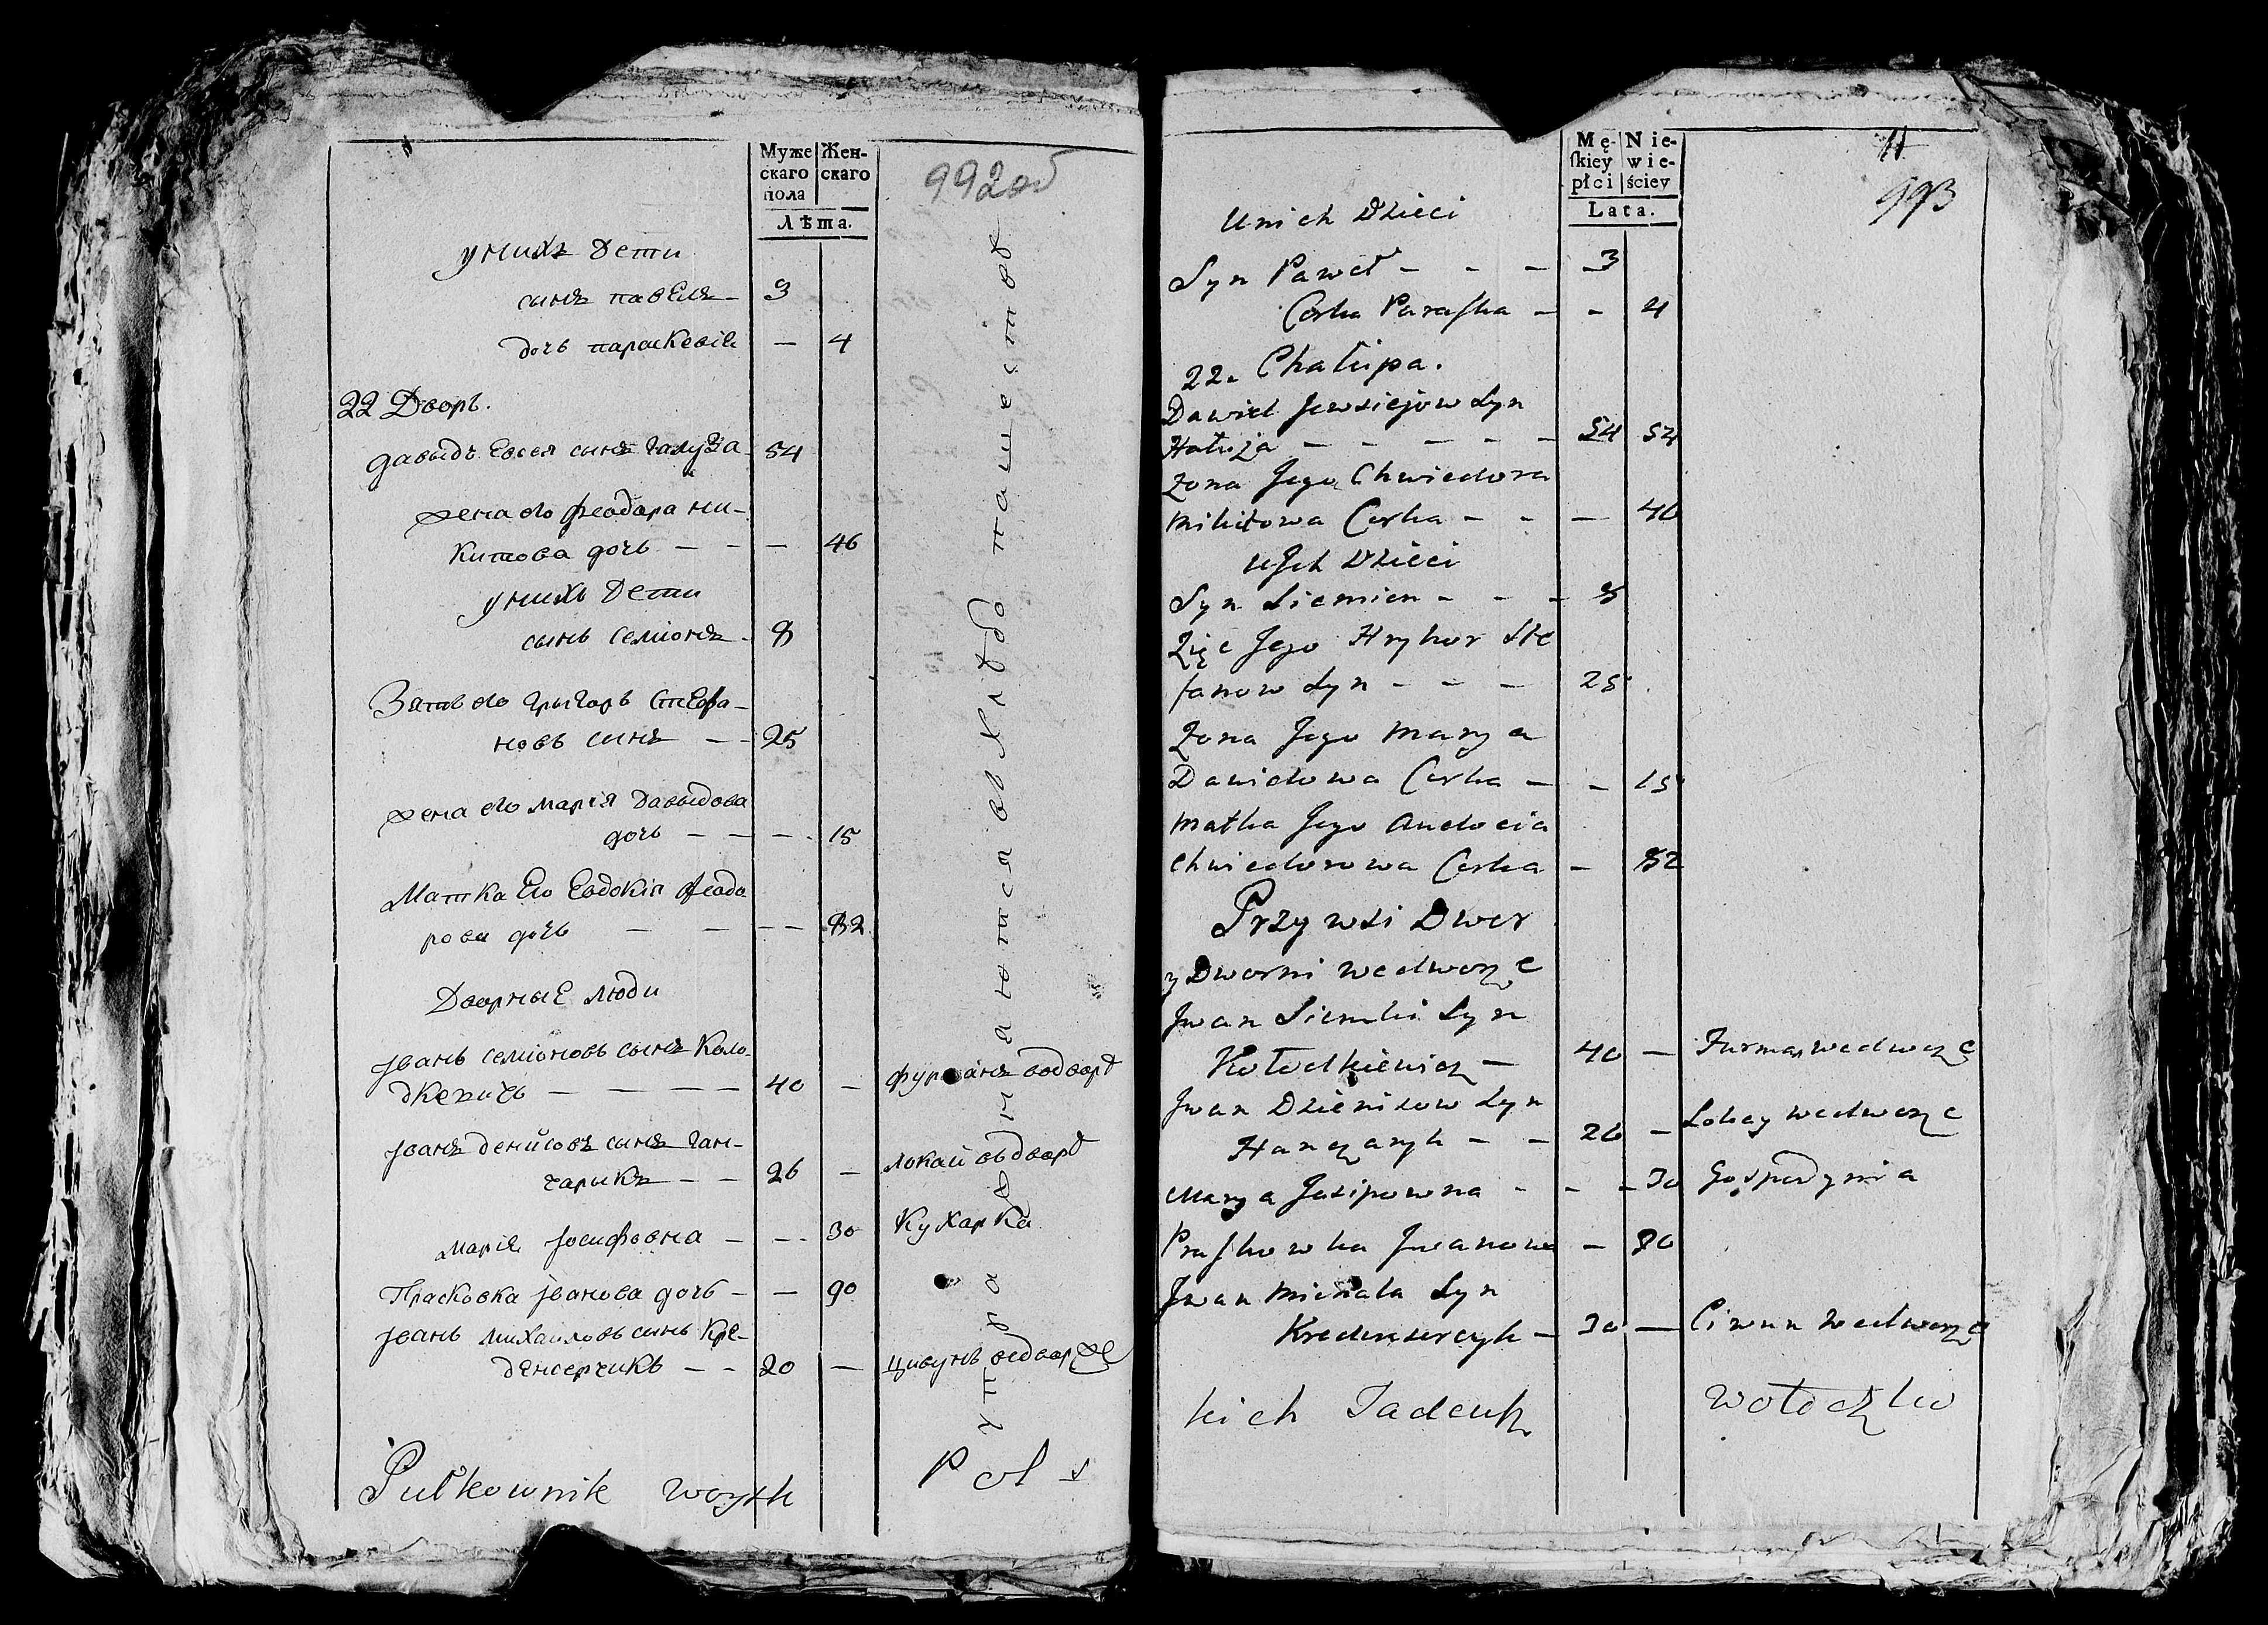 Муже Жен-
скаго скаго
пола
Лѣта.
992об
у нихъ Дети
сынъ павелъ – 3
дочь параскевія – 4
22 Дворъ.
давыдъ Евсея сынъ галуза 54
жена его феодора ни-
китова дочь – – – 46
у нихъ Дети
сынъ семіонъ – 8
Зять его григоръ Стефа-
новъ сынъ – – 25
жена его марія давыдова
дочь – – – 15
Матка Его Евдокія феодо
рова дочь – – – – 82
Дворные люди
Іванъ семіоновъ сынъ Коло-
дкевичъ – – – – 40 – фурманъ водворѣ
Іванъ денисовъ сынъ ган-
чарыкъ – – 26 – локай въдворѣ
марія Іосифовна – – – 30 Кухарка
Прасковка Іванова дочь – – 90
Іванъ михаиловъ сынъ Кре-
денсерчикъ – – 20 – цивунъ водворже
Pułkownik Woysk
Pols
11
993
Mę- Nie-
skiey wie-
płci ściey
Lata.
Unich Dzieci
Syn Paweł – – – 3
Corka Paraska – – 4
22. Chałupa.
Dawid Jewsiejow Syn
Hałuza – – – – – 54 54
Zona Jego Chwiedora
Mikitowa Corka – – – 46
uJch Dzieci
Syn Siemien – – – 8
Zięc Jego Hryhor Ste
fanow Syn – – – 25
Zona Jego Marya
Dawidowa Corka – – 15
Matka Jego Audocia
Chwiedorowa Corka – 82
Przy wsi Dwor
y Dworni wedworze
Jwan Siemki Syn
Kołodkiewicz – 40 – Furman wedworze
Jwan Dzienisow Syn
Hanczaryk – – 26 – Lokay wedworze
Marya Josipowna – – – 30 Gospodynia
Praskowka Jwanowa – 90
Jwan Michała Syn
Kredensercyk – 30 – Ciwun wedworze
kich Tadeusz
Wołodzko